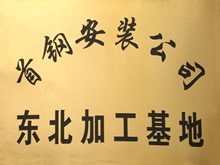 省钢安装公司
东北加工基地